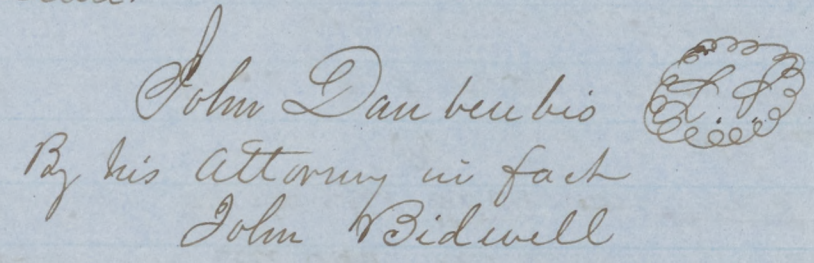 John Daubenbis L.S.
By his Attorney in fact
John Bidwell